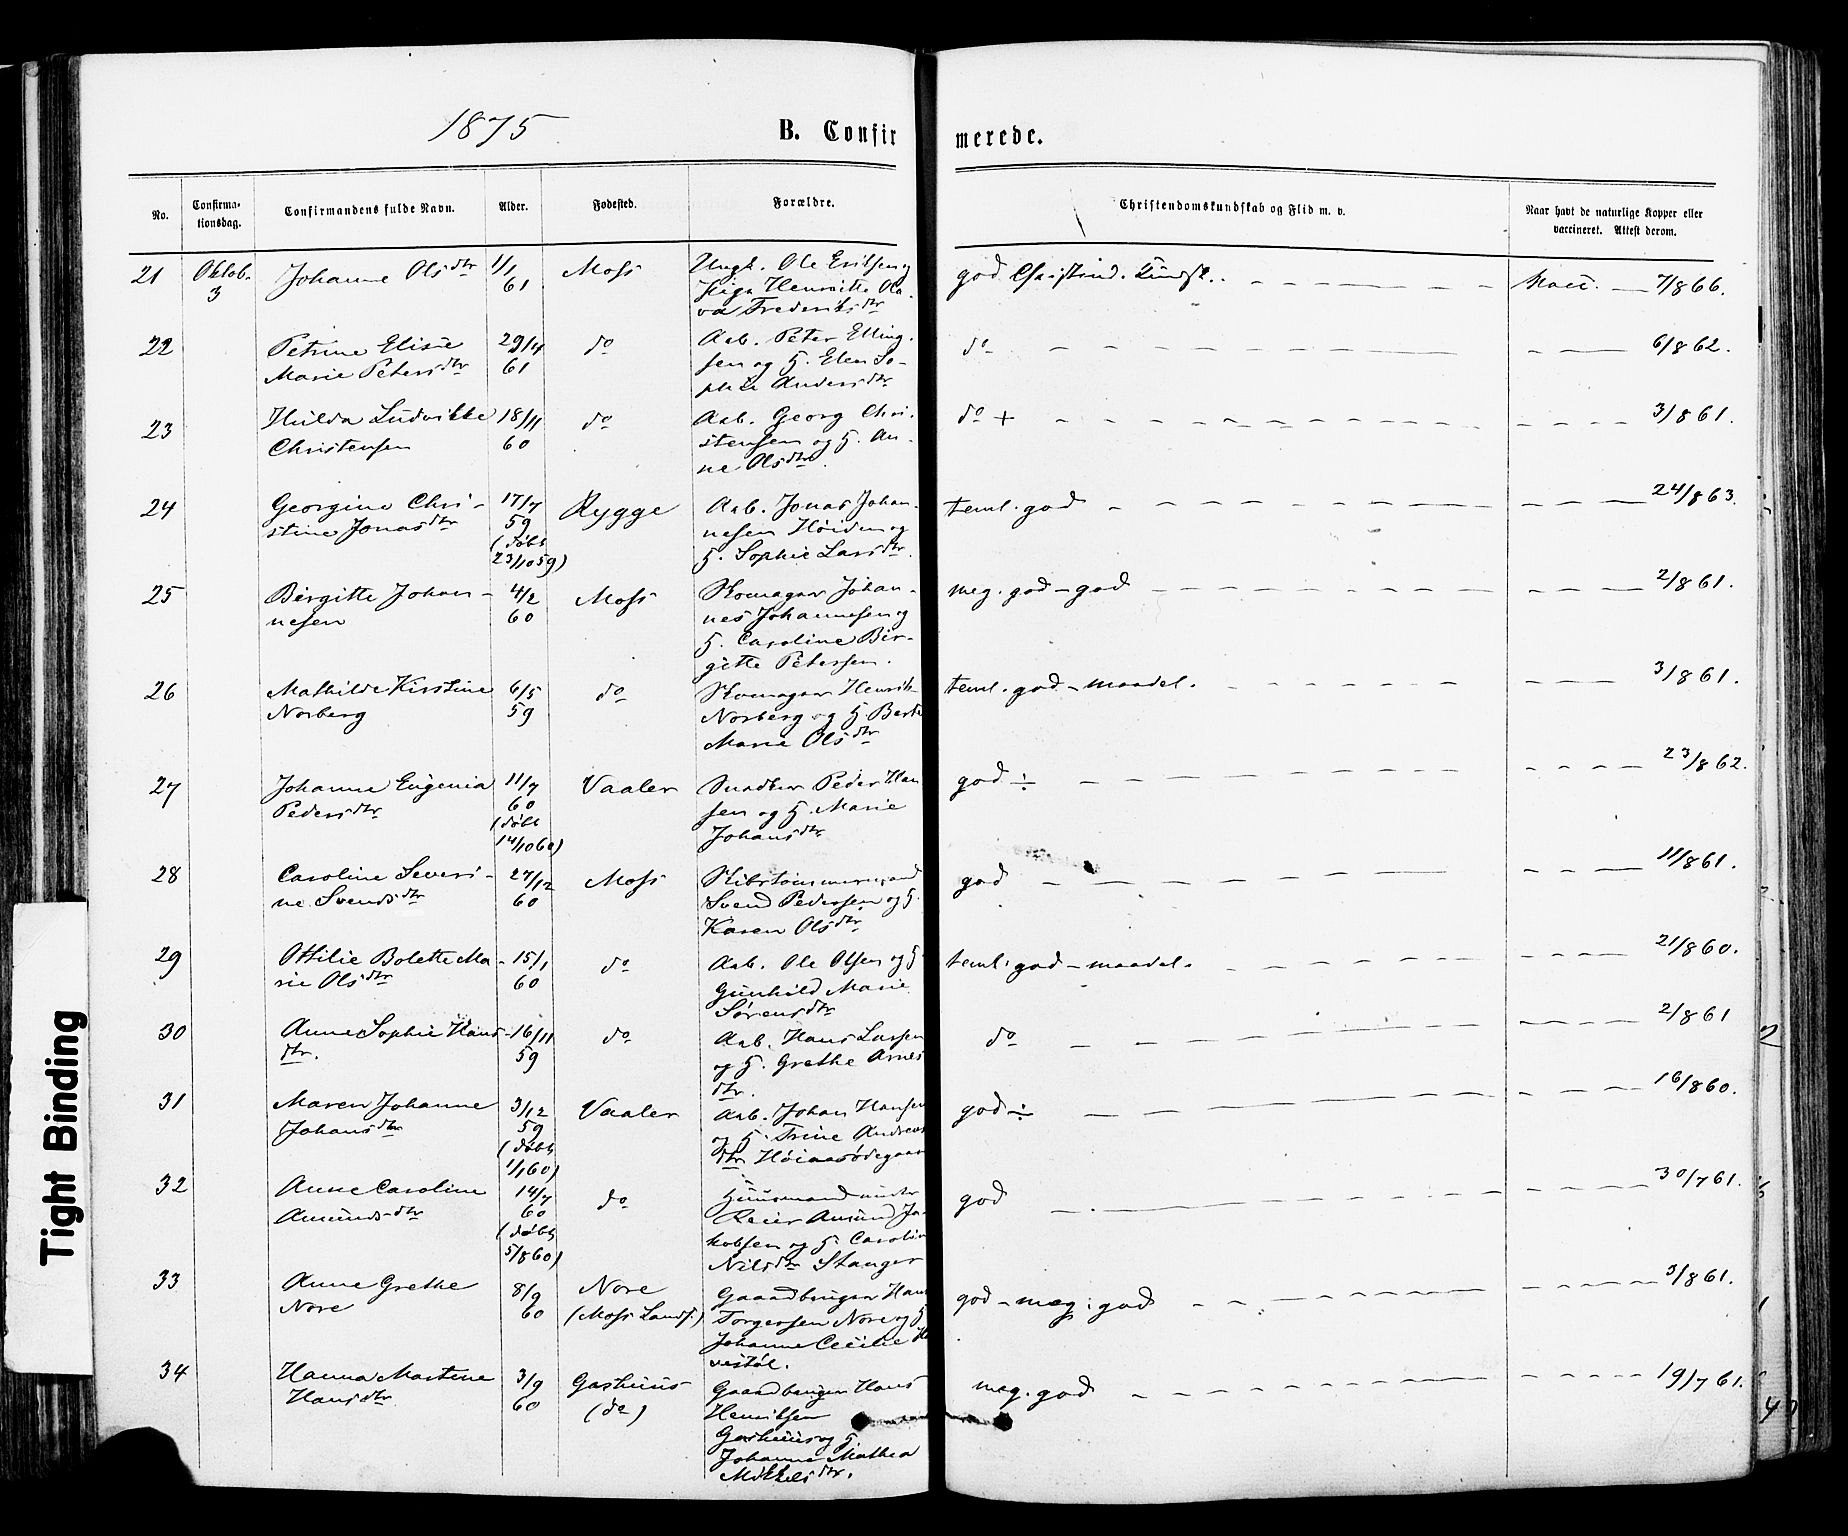 1875
B. Confirmerede.
No. Confirmationsdag. Confirmandens fulde Navn. Alder. Fødested. Forældre. Christendomskundskab og Flid m. v. Naar havt de naturlige Kopper eller vaccineret. Attest derom.
21 Oktob. 3 Johanne Olsdtr 1/1 61 Moss Ungk. Ole Eriksen og
Pige Henriette Ola-
va Frederiksdtr god Christend. Kundsk. Vacc. 7/8 66.
22 Petrine Elise
Marie Petersdtr 29/4 61 do Arb. Peter Elling-
sen og H. Elen So-
phie Andersdtr do 6/8 62.
23 Hulda Ludvikke
Christensen 18/11 60 do Arb. Georg Chri-
stensen og H. An-
ne Olsdtr. do + 3/8 61.
24 Georgine Chri-
stine Jonasdtr 17/7 59 (døbt 23/10 59) Rygge Arb. Jonas Johan-
nesen Høiden og
H. Sophie Larsdtr. teml. god 24/8 63.
25 Birgitte Johan-
nesen 4/2 60 Moss Skomager Johan-
nes Johannesen og
H. Caroline Bir-
gitte Petersen. meg. god - god 2/8 61.
26 Mathilde Kirstine
Norberg 6/5 59 do Skomager Henrik
Norberg og H. Berte
Marie Olsdtr teml. god - maadel. 3/8 61.
27 Johanne Eugenia
Pedersdtr 11/7 60 (døbt 14/10 60) Vaaler Snedker Peder Han
sen og H. Marie
Johansdtr god ÷ 23/8 62.
28 Caroline Severi-
ne Svendsdtr 27/12 60 Moss Skibstømmermand
Svend Pedersen og H.
Karen Olsdtr god 11/8 61.
29 Ottilie Bolette Ma-
rie Olsdtr 15/1 60 do Arb. Ole Olsen og H.
Gunhild Marie
Sørensdtr teml. god - maadel. 21/8 60.
30 Anne Sophie Hans-
dtr. 16/11 59 do Arb. Hans Larsen
og H. Grethe Arnes
dtr. do 2/8 61
31 Maren Johanne
Johansdtr 3/12 59 (døbt 1/1 60) Vaaler Arb. Johan Hansen
og H. Trine Andreas
dtr god ÷ 16/8 60.
32 Anne Caroline
Amundsdtr 14/7 60 (døbt 5/8 60) do Huusmand under
Reier Amund Ja-
kobsen og H. Carolin
Nilsdtr Stanger god 30/7 61.
33 Anne Grethe
Nore 8/9 60 Nore
(Moss Lands.) Gaardbruger Hans
Torgersen Nore og H
Johanne Cecilie
god - meg. god 3/8 61.
34 Hanna Martine
Hansdtr 3/9 60 Gashuus
(do) Gaardbruger Hans
Henriksen
Gashuus og H.
Johanne Mathea
Mikkelsdtr. meg. god 19/7 61.
Tight Binding